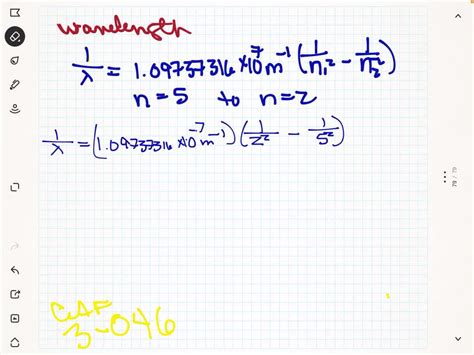 wavelength
1/λ = 1.09737316×10⁷ m⁻¹ (1/n₁² - 1/n₂²)
n=5 to n=2
1/λ = (1.09737316×10⁻⁷ m⁻¹) (1/2² - 1/5²)
3-046